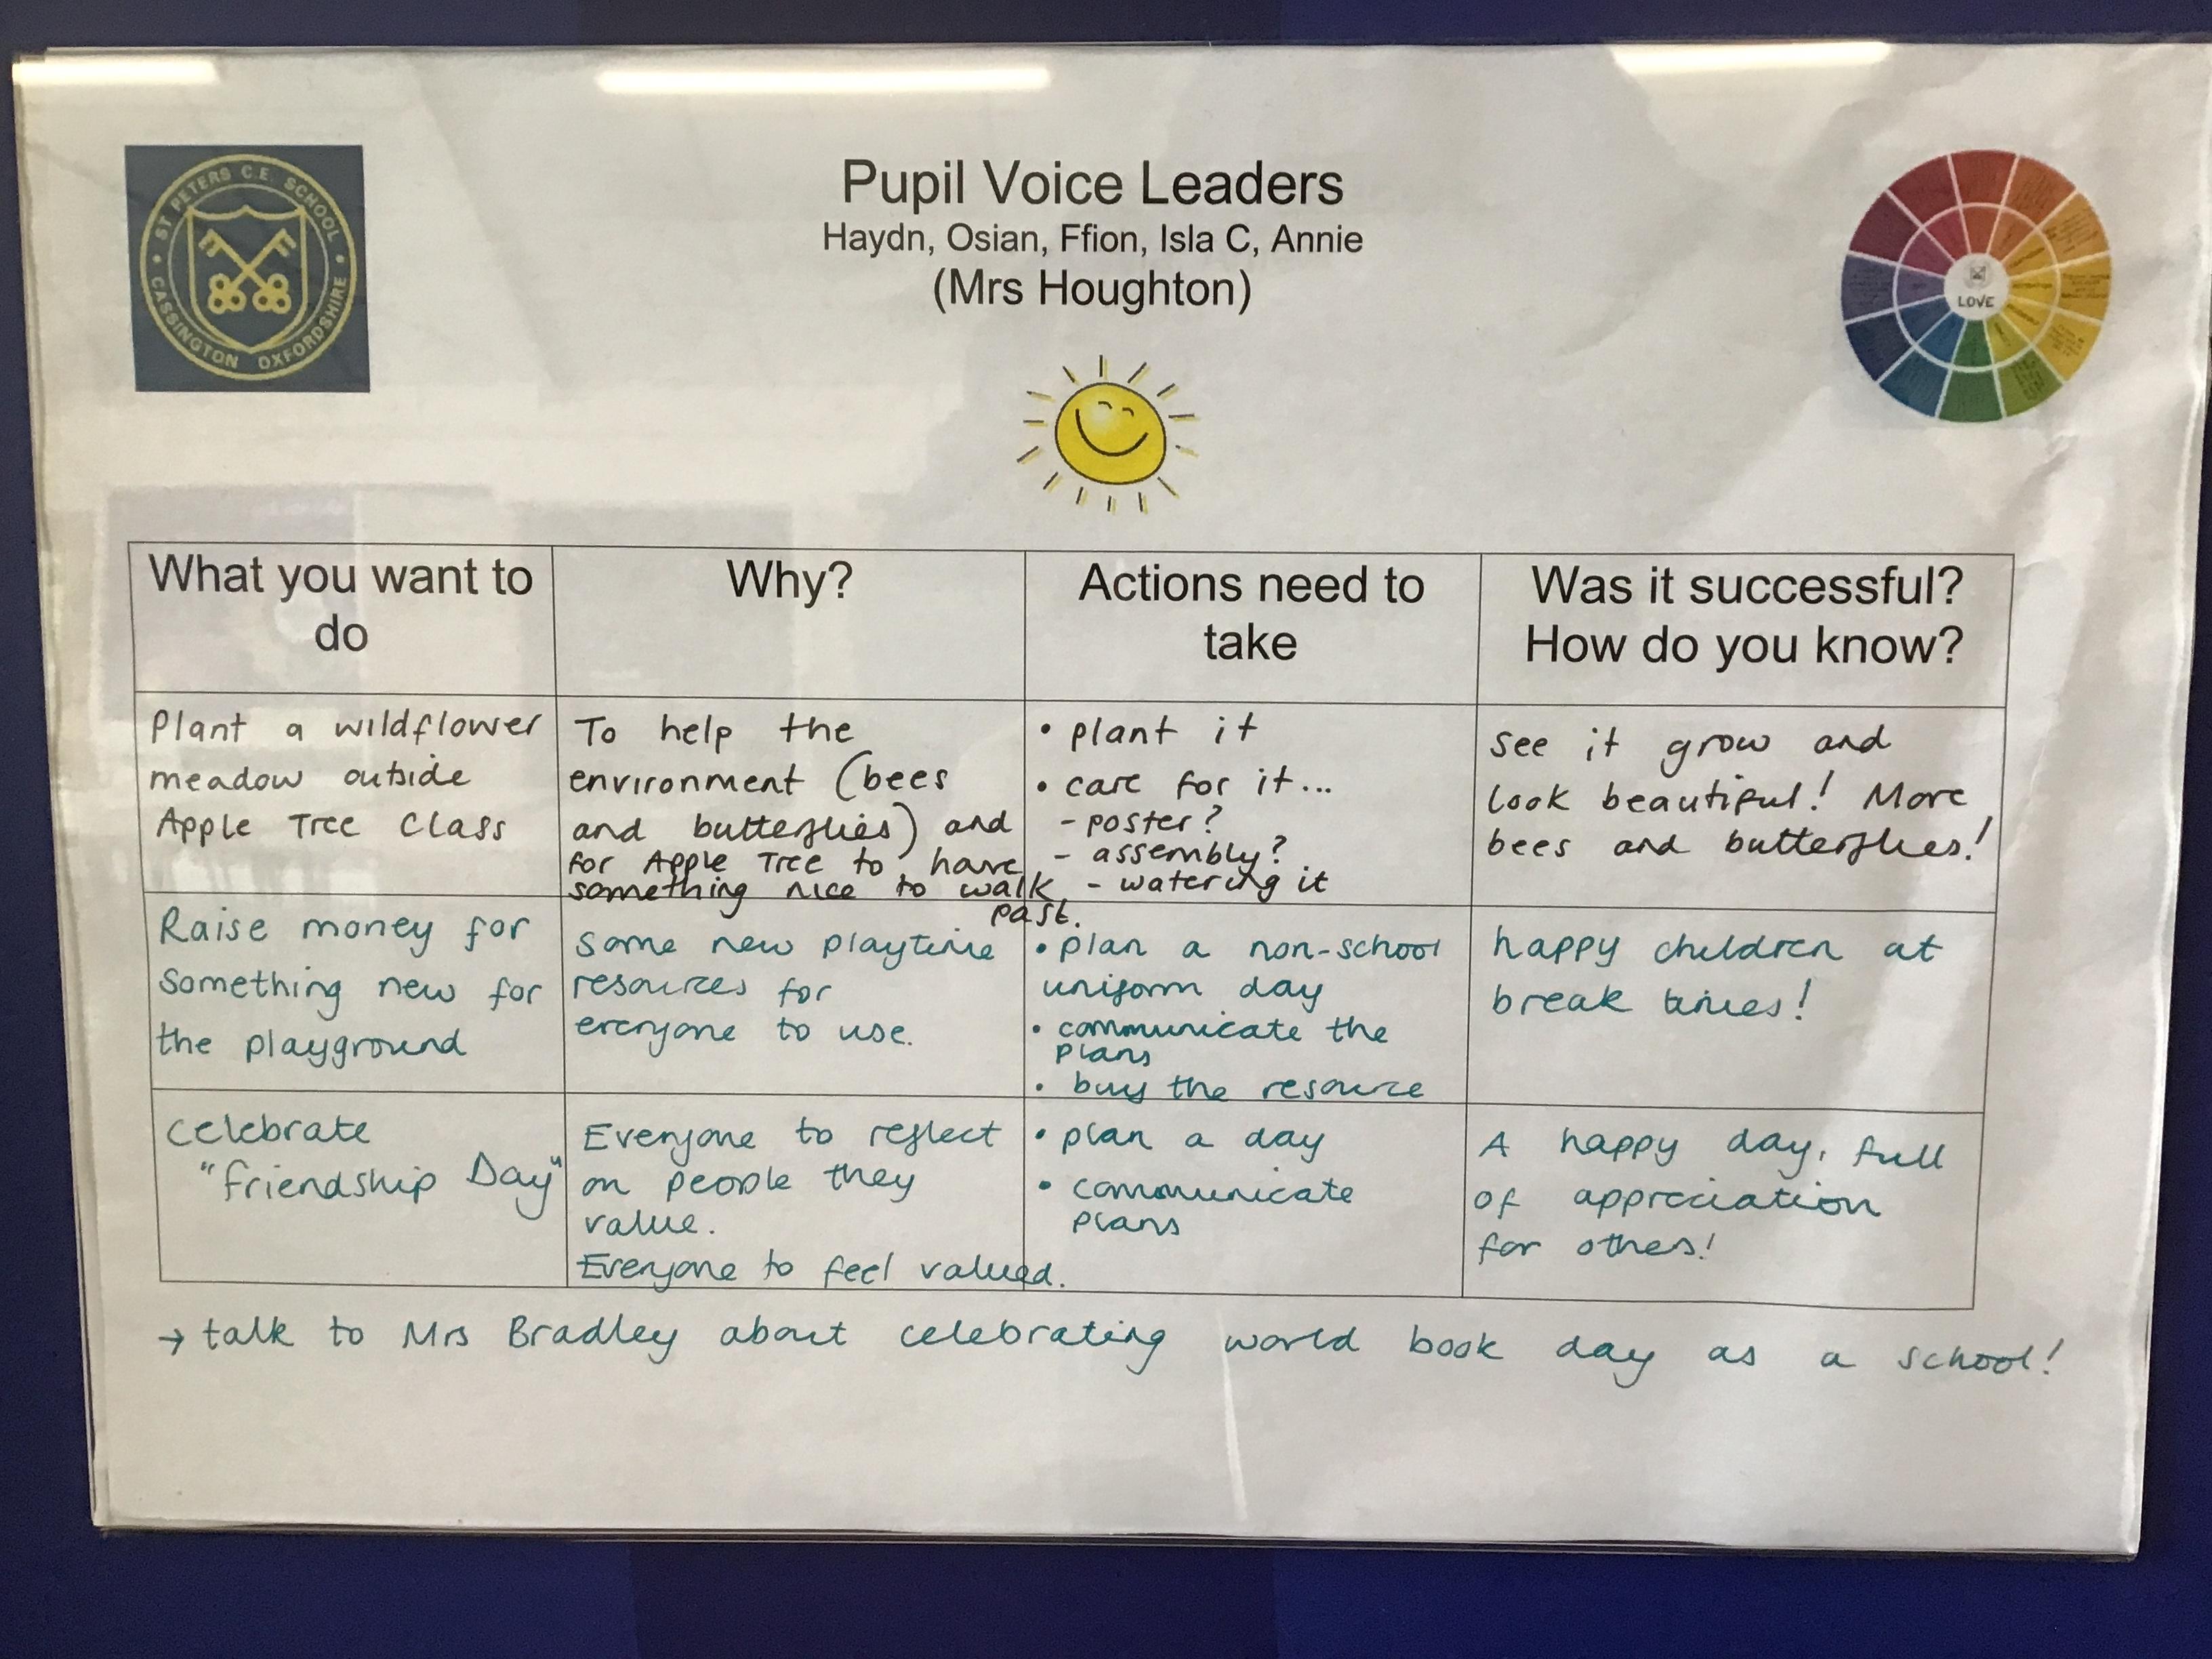 ST PETERS C.E. SCHOOL
CASSINGTON OXFORDSHIRE
Pupil Voice Leaders
Haydn, Osian, Ffion, Isla C, Annie
(Mrs Houghton)
LOVE
What you want to
do
Why?
Actions need to
take
Was it successful?
How do you know?
Plant a wildflower
meadow outside
Apple Tree Class
To help the
environment (bees
and butterflies) and
for Apple Tree to have
something nice to walk
past.
• plant it
• care for it...
- poster?
- assembly?
- watering it
see it grow and
look beautiful! More
bees and butterflies!
Raise money for
something new for
the playground
some new playtime
resources for
everyone to use.
• plan a non-school
uniform day
• communicate the
plans
• buy the resource
happy children at
break times!
celebrate
"friendship Day"
Everyone to reflect
on people they
value.
Everyone to feel valued.
• plan a day
• communicate
plans
A happy day, full
of appreciation
for others!
→ talk to Mrs Bradley about celebrating world book day as a school!